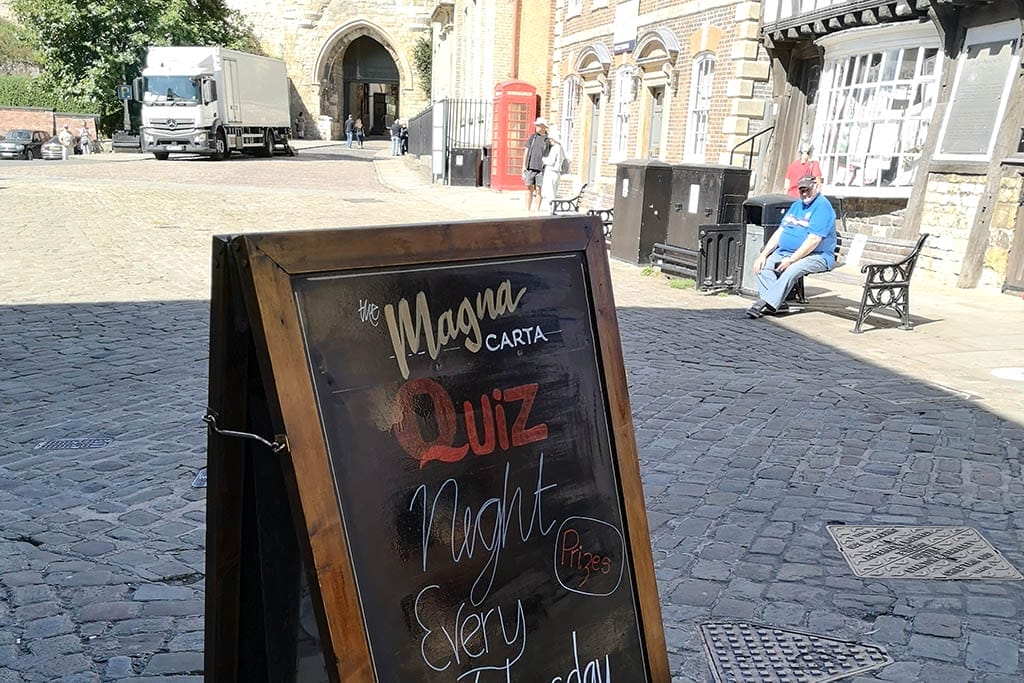 the Magna
CARTA
Quiz
Night
Prizes
Every